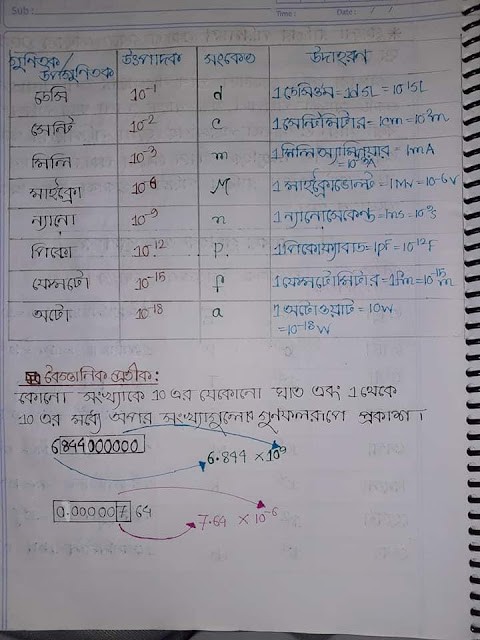 Sub :
Time : Date : / /
গুণিতক/ উৎপাদক সংকেত উদাহরণ
উপগুণিতক
ডেসি 10⁻¹ d 1 ডেসিওম = 1dΩ = 10⁻¹Ω
সেন্টি 10⁻² c 1 সেন্টিমিটার = 1cm = 10⁻²m
মিলি 10⁻³ m 1 মিলি অ্যাম্পিয়ার = 1mA
= 10⁻³A
মাইক্রো 10⁻⁶ M 1 মাইক্রোভোল্ট = 1MV = 10⁻⁶V
ন্যানো 10⁻⁹ n 1 ন্যানোসেকেন্ড = 1ns = 10⁻⁹s
পিকো 10⁻¹² P. 1 পিকোফ্যারাড = 1pF = 10⁻¹²F
ফেমটো 10⁻¹⁵ f 1 ফেমটোমিটার = 1fm = 10⁻¹⁵m
অটো 10⁻¹⁸ a 1 অটোওয়াট = 10W
= 10⁻¹⁸W
বৈজ্ঞানিক প্রতীক :
কোনো সংখ্যাকে 10 এর যেকোনো ঘাত এবং 1 থেকে
10 এর মধ্যে অপর সংখ্যাগুলোর গুণফলরূপে প্রকাশ।
6844000000
6.844 × 10⁹
0.00000764
7.64 × 10⁻⁶